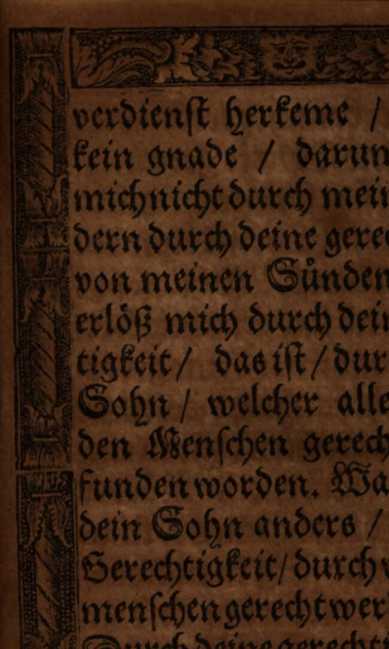 verdienſt herkeme /
kein gnade / darun
mich nicht durch mein
dern durch deine gere
von meinen Sünden
erlöß mich durch dein
tigkeit / das iſt / dur
Sohn / welcher alle
den Menſchen gerech
funden worden. Wa
dein Sohn anders /
Gerechtigkeit / durch
menſchen gerecht wer
Durch deine gerechti